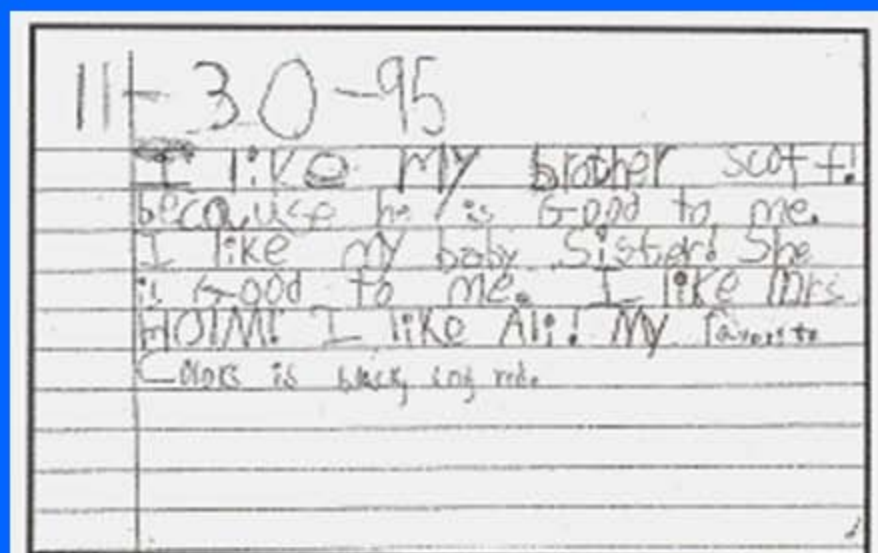 11-30-95
I like My brother scott!
because he is Good to me.
I like my baby Sister! She
is Good to me. I like Mrs
HOlM! I like Ali! My favorite
Colors is black, red.